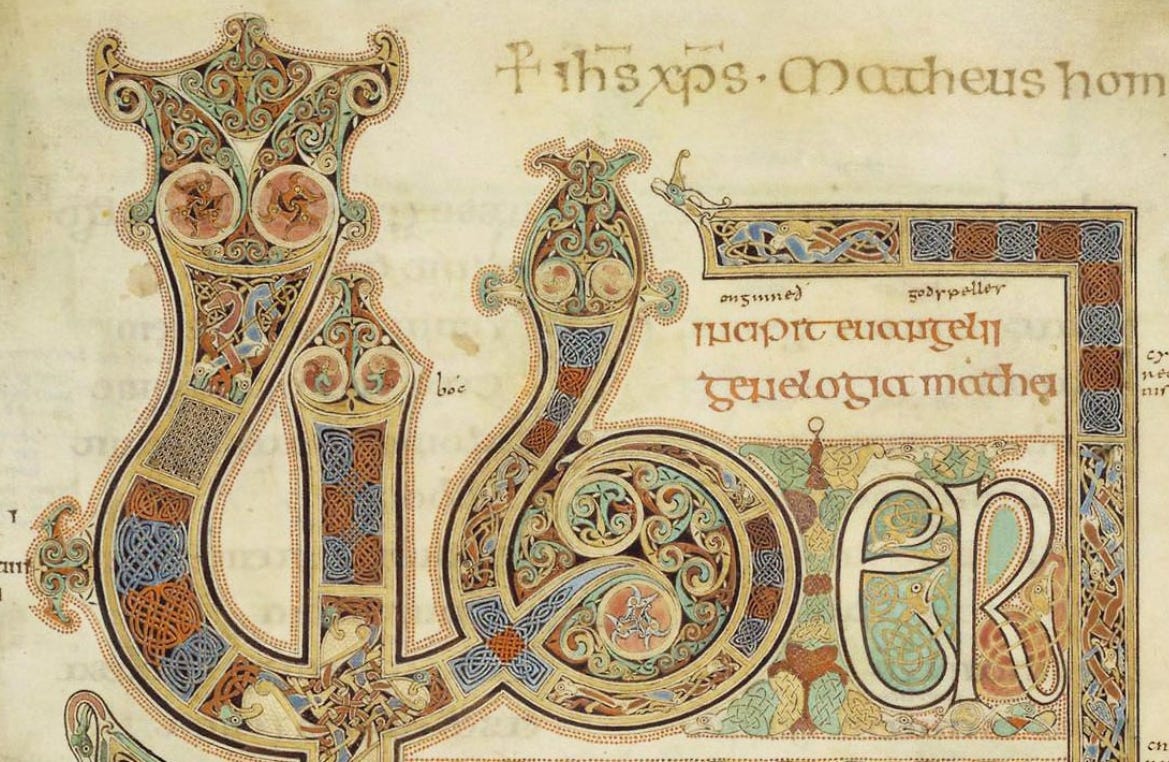 + ihs xps · Matheus hom
onginneð godspelles
incipit euangelii
genelogia mathei
boc
Liber